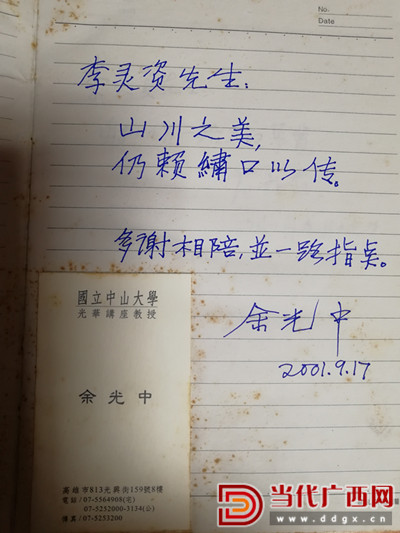 No.
Date
李灵资先生：
山川之美，
仍赖繡口以传。
多谢相陪，並一路指点。
余光中
2001.9.17
國立中山大學
光華講座教授
余光中
高雄市813光興街159號8樓
電話/07-5564908(宅)
07-5252000-3134(公)
傳真/07-5253200
当代广西网
www.ddgx.cn